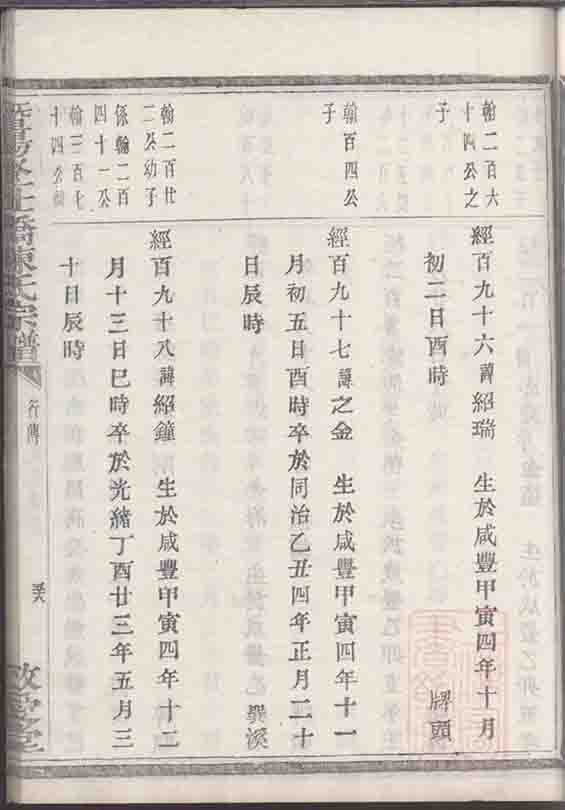 翰二百六
十四公之
子
經百九十六諱紹瑞 生於咸豐甲寅四年十月
初二日酉時 牌頭
翰百四公
子
經百九十七諱之金 生於咸豐甲寅四年十一
月初五日酉時卒於同治乙丑四年正月二十
日辰時 璺溪
翰二百廿
二公幼子
係翰二百
四十一公
翰三百七
十四公
經百九十八諱紹鐘 生於咸豐甲寅四年十二
月十三日巳時卒於光緒丁酉廿三年五月三
十日辰時
橋陳氏宗譜
行傳